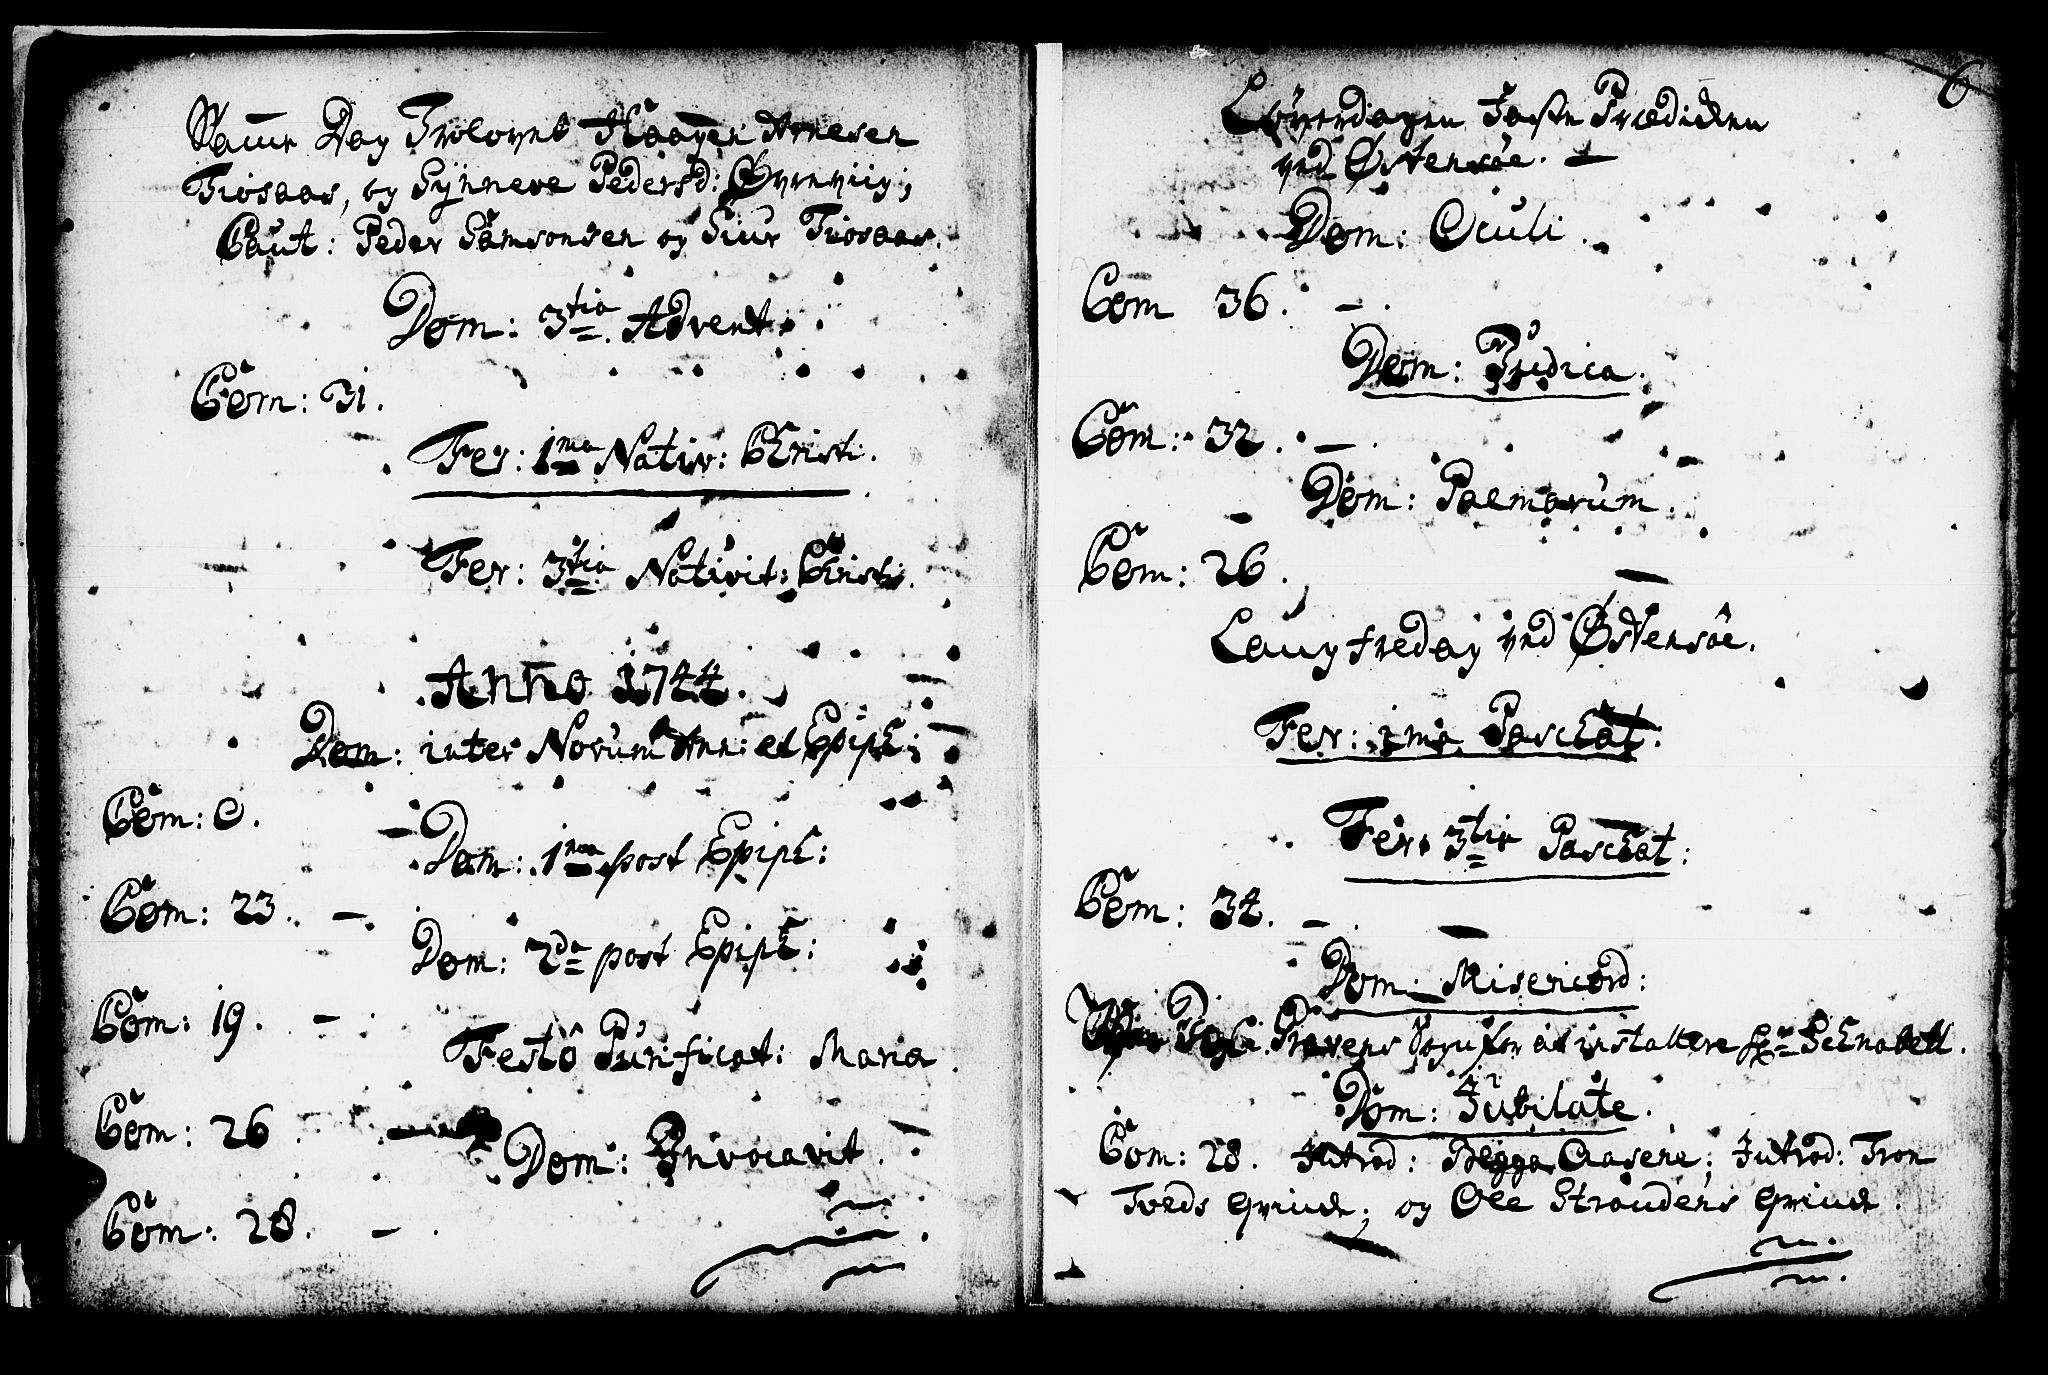 Samme Dag Trolovet Haagen Arnesen
Tiosaas, og Synneve Pedersd: Øvreviig;
Caut: Peder Samsonsen og Siur Tiosaas.
Dom: 3tia Advent.
Com: 31.
Fer: 1ma Nativ: Christi.
Fer: 3tia Nativit: Christi.
Anno 1744.
Dom: inter Novum Ann: et Epiph:
Com: 0.
Dom: 1ma post Epiph:
Com: 23. -.
Dom: 2da post Epiph:
Com: 19. -.
Festo Purificat: Maria.
Com: 26.
Dom: Invocavit.
Com: 28. -.
6
Löverdagen Faste Prædicken
ved Østensöe. -
Dom: Oculi.
Com 36. -.
Dom: Judica.
Com: 32. -.
Dom: Palmarum.
Com: 26.
Langfredag ved Østensöe.
Fer: 1ma Paschat:
Fer: 3tia Paschat:
Com: 34. -.
Dom: Misericord:
Provens Sogn for at installere Hr Schnabell.
Dom: Jubilate.
Com: 28. Introd: Begga Aasene; Introd: Tron
Tveds Qvinde; og Ole Straudens Qvinde.